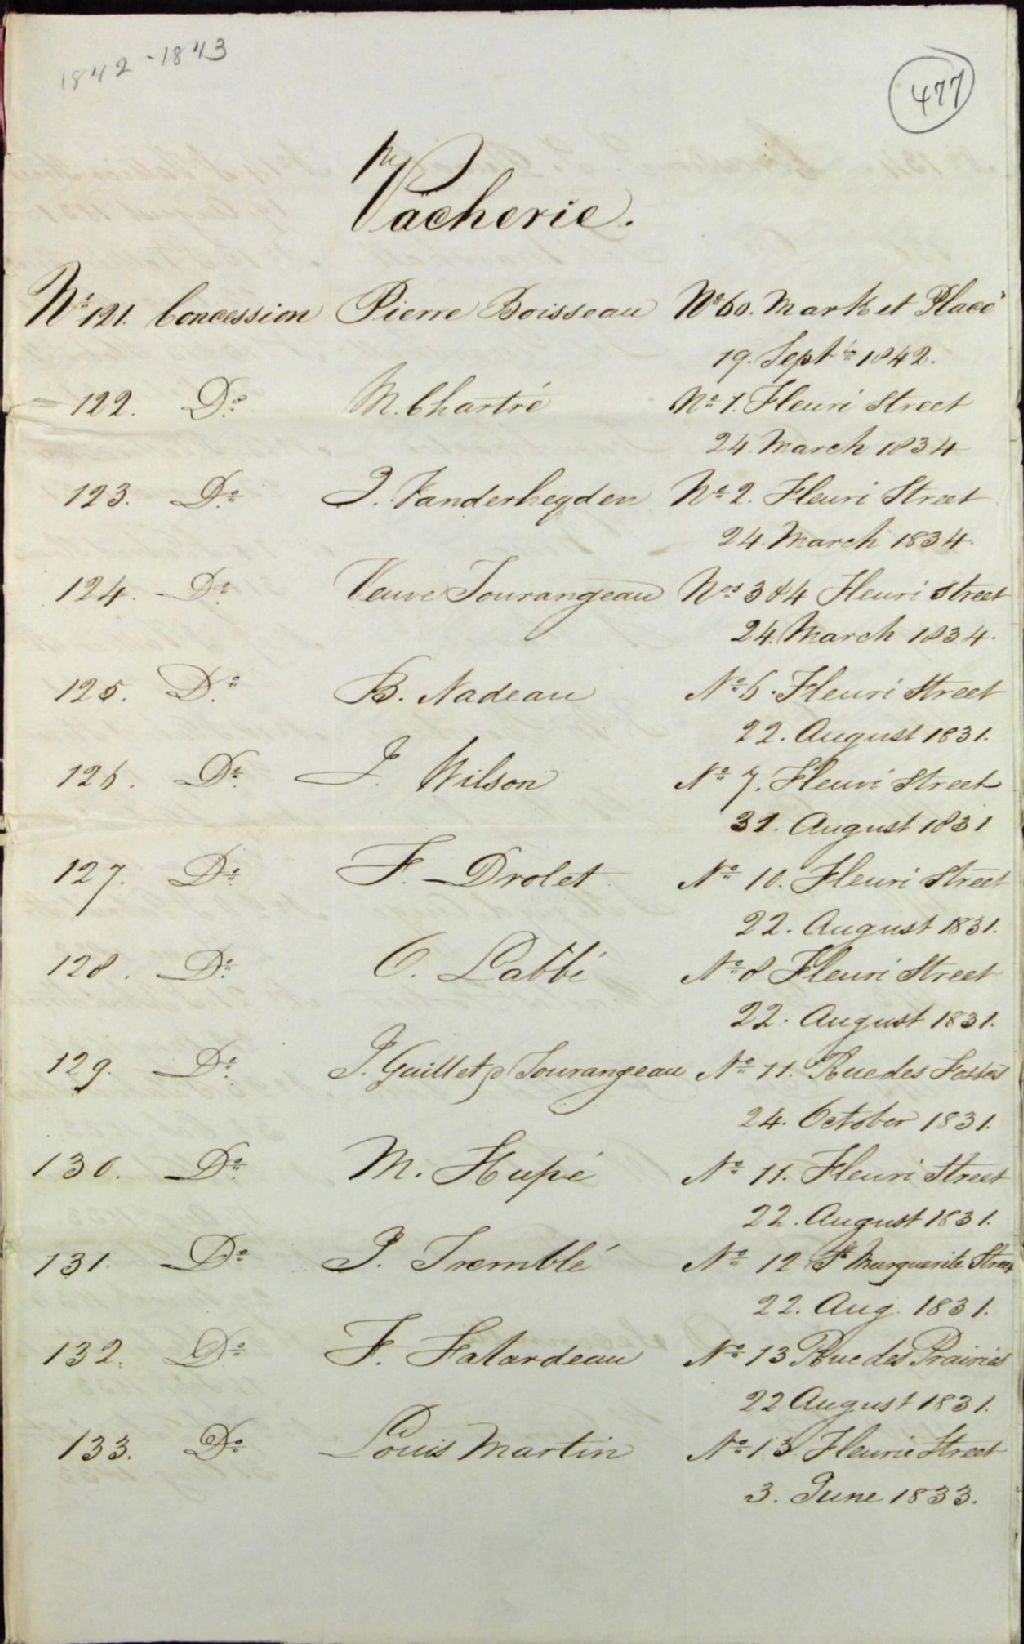 1842-1843
477
Vacherie.
No 121. Concession Pierre Boisseau No 60. Market Place
19. Septbr 1842.
122. Do M. Chartré No 1. Fleuri Street
24 March 1834
123. Do J. Vanderheyden No 2. Fleuri Street
24. March 1834.
124. Do Veuve Tourangeau Nos 3 & 4 Fleuri Street
24. March 1834.
125. Do B. Nadeau No 6. Fleuri Street
22. August 1831.
126. Do J. Wilson No 7. Fleuri Street
31. August 1831
127. Do F. Drolet No 10. Fleuri Street
22. August 1831.
128. Do O. Labbé No 8 Fleuri Street
22. August 1831.
129. Do J. Guillet Tourangeau No 11. Rue des Fossés
24. October 1831.
130. Do M. Hupé No 11. Fleuri Street
22. August 1831.
131. Do J. Tremblé No 12 St Marguerite Street
22. Aug. 1831.
132. Do F. Falardeau No 13 Rue des Prairies
22 August 1831.
133. Do Louis Martin No 13 Fleurie Street
3. June 1833.